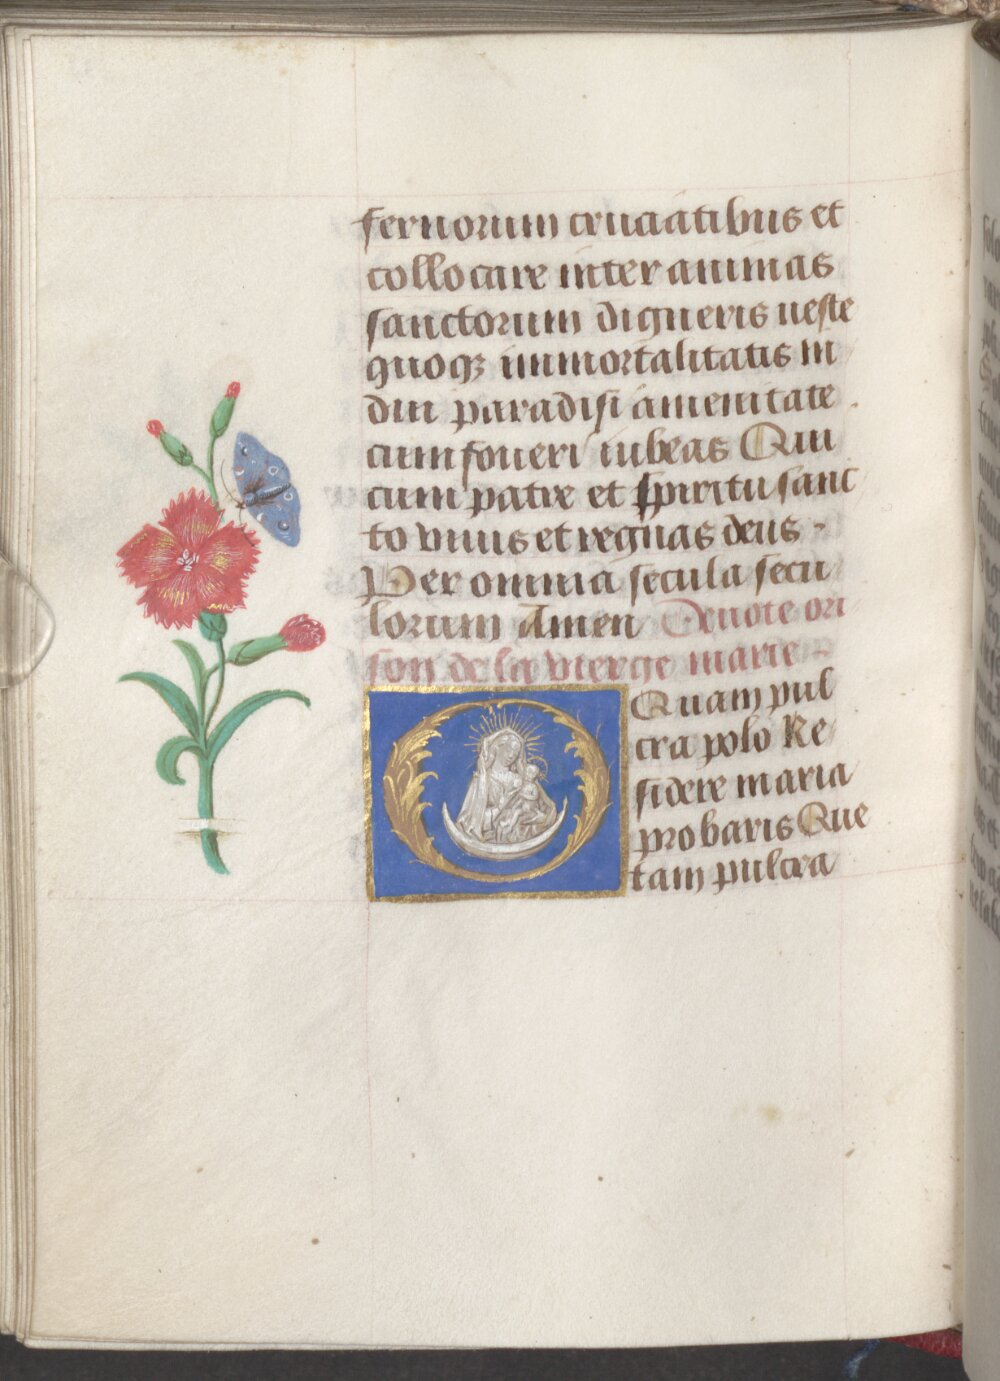 fernorum cruciatibus et
collocare inter animas
sanctorum digneris ueste
quoqz immortalitatis in
dui paradisi amenitate
cum foueri iubeas Qui
cum patre et spiritu sanc
to viuis et regnas deus
Per omnia secula secu
lorum Amen Deuote ori
son de la vierge marie
Quam pul
cra polo Re
sidere maria
probaris Que
tam pulcra